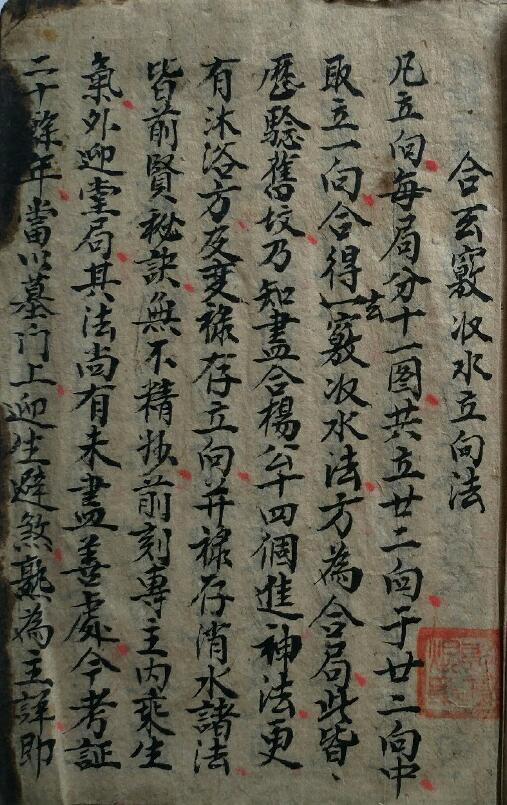 合玄竅收水立向法
凡立向每局分十一图共立廿二向于廿二向中
取立一向合得一玄竅收水法方為合局此皆、
歷騐舊坟乃知盡合楊公十四個進神法更
有沐浴方及变祿存立向并祿存消水諸法
皆前賢祕訣無不精妙前刻專主內乘生
氣外迎堂局其法尚有未盡善處今考証
二十餘年當以墓門上迎生避煞氣為主詳即